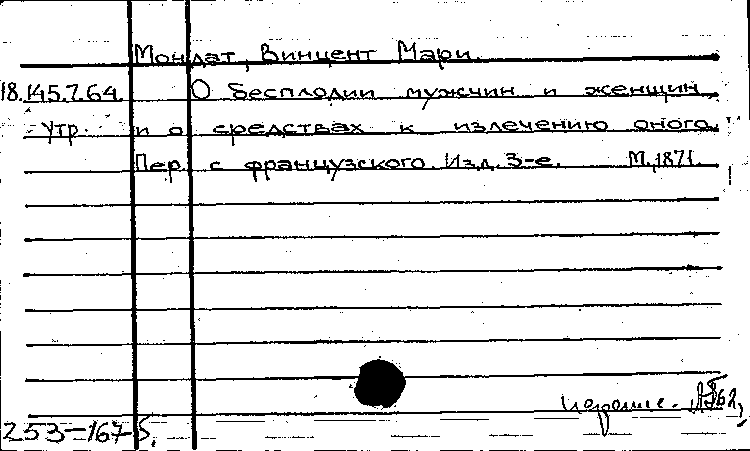 Мондат, Винцент Мари.
18.145.7.64. О бесплодии мужчин и женщин
утр. и о средствах к излечению оного.
Пер. с французского. Изд. 3-е. М., 1871.
253-167 5.